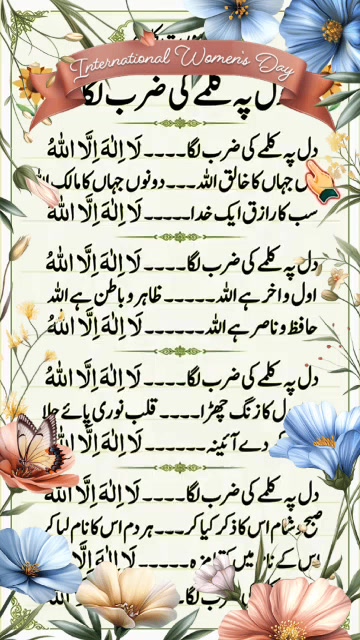 International Women's Day
دل پہ کلمے کی ضرب لگا
دل پہ کلمے کی ضرب لگا۔۔۔۔ لَا اِلٰہَ اِلَّا اللہُ
جہاں کا خالق اللہ۔۔۔دونوں جہاں کا مالک اللہ
سب کا رازق ایک خدا۔۔۔۔۔ لَا اِلٰہَ اِلَّا اللہُ
دل پہ کلمے کی ضرب لگا۔۔۔۔ لَا اِلٰہَ اِلَّا اللہُ
اول و اخر ہے اللہ۔۔۔۔۔ ظاہر و باطن ہے اللہ
حافظ و ناصر ہے اللہ۔۔۔۔۔۔ لَا اِلٰہَ اِلَّا اللہُ
دل پہ کلمے کی ضرب لگا۔۔۔۔ لَا اِلٰہَ اِلَّا اللہُ
کا زنگ چھڑا۔۔۔۔۔ قلب نوری پائے جلا
دے آئینہ۔۔۔۔۔ لَا اِلٰہَ اِلَّا اللہُ
دل پہ کلمے کی ضرب لگا۔۔۔۔ لَا اِلٰہَ اِلَّا اللہُ
صبح و شام اس کا ذکر کیا کر۔۔۔ہر دم اس کا نام لیا کر
اس کے نام میں لَا اِلٰہَ اِلَّا